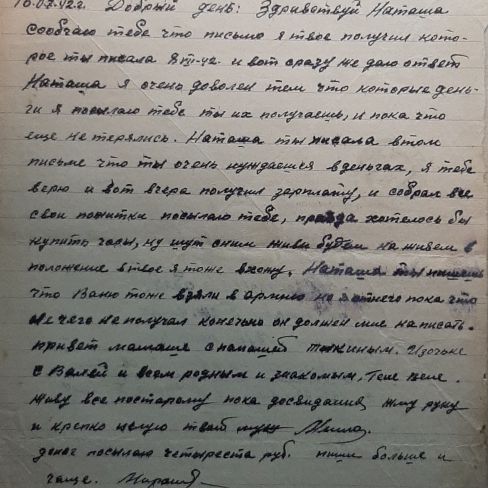 16.07.42г. Добрый день: Здравствуй Наташа
сообчаю тебе что письмо я твое получил кото-
рое ты писала 8/VII-42. и вот сразу же даю ответ
Наташа я очень доволен тем что которые день-
ги я посылаю тебе ты их получаешь, и пока что
еще не терялись. Наташа ты писала в том
письме что ты очень нуждаешся в деньгах, я тебе
верю и вот вчера получил зарплату, и собрал все
свои пожитки посылаю тебе, правда хотелось бы
купить часы, ну шут сним живы будем наживем в
положение в твое я тоже вхожу. Наташа ты пишешь
что Ваню тоже взяли в армию но я от него пока что
не чего не получал конечно он должен мне написать.
привет мамаше с папашей
с Валей и всем родным и знакомым.
живу все постарому пока досвидания, жму руку
и крепко целую твой муж
денег посылаю четыреста руб. пиши больше и
чаще.